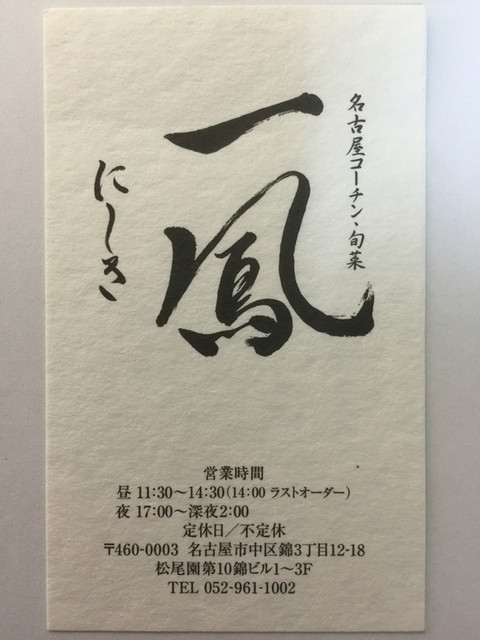 名古屋コーチン・旬菜
一鳳
にしき
営業時間
昼 11:30～14:30(14:00 ラストオーダー)
夜 17:00～深夜2:00
定休日／不定休
〒460-0003 名古屋市中区錦3丁目12-18
松尾園第10錦ビル1～3F
TEL 052-961-1002